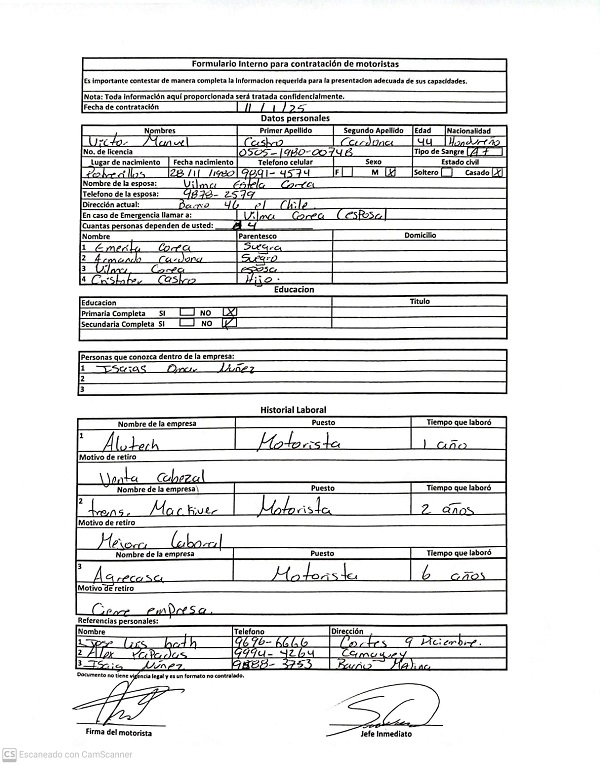 Formulario Interno para contratación de motoristas
Es importante contestar de manera completa la Informacion requerida para la presentacion adecuada de sus capacidades.
Nota: Toda información aquí proporcionada será tratada confidencialmente.
Fecha de contratación 11/1/25
Datos personales
Nombres Primer Apellido Segundo Apellido Edad Nacionalidad
Victor Manuel Castro Cardona 44 Hondureño
No. de licencia 0505-1980-00748 Tipo de Sangre A+
Lugar de nacimiento Fecha nacimiento Telefono celular Sexo Estado civil
28/11/1980 9891-4574 F M X Soltero Casado X
Nombre de la esposa: Vilma Corea
Telefono de la esposa: 9878-2579
Dirección actual: Barrio 46 el Chile.
En caso de Emergencia llamar a: Vilma Corea (esposa)
Cuantas personas dependen de usted: 4
Nombre Parentesco Domicilio
1 Emerita Corea Suegra
2 Armando Cardona Suegro
3 Vilma Corea esposa
4 Cristofer Castro Hijo.
Educacion
Educacion Titulo
Primaria Completa SI NO X
Secundaria Completa SI NO X
Personas que conozca dentro de la empresa:
1 Isaias Omar Nuñez
2
3
Historial Laboral
Nombre de la empresa Puesto Tiempo que laboró
1 Alutech Motorista 1 año
Motivo de retiro
Venta Cabezal
Nombre de la empresa Puesto Tiempo que laboró
2 trans. Mackiver Motorista 2 años
Motivo de retiro
Mejora Laboral
Nombre de la empresa Puesto Tiempo que laboró
3 Agrecasa Motorista 6 años
Motivo de retiro
Cierre empresa.
Referencias personales:
Nombre Telefono Dirección
1 Jose Luis 9696-6666 Cortes 9 Diciembre.
2 Alex 9994-4264 Camaguey
3 Isais Nuñez 9888-3753 Barrio Medina
Documento no tiene vigencia legal y es un formato no contralado.
Firma del motorista Jefe Inmediato
CS Escaneado con CamScanner